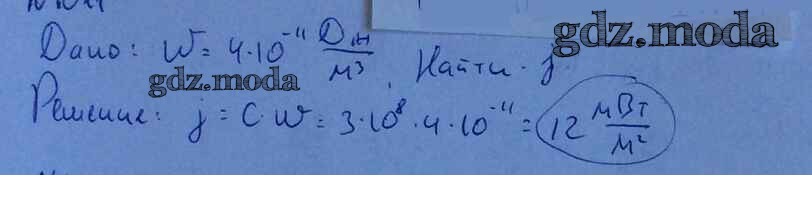 Дано: W = 4·10⁻¹¹ Дж/м³, Найти - j.
gdz.moda
gdz.moda
Решение: j = c·w = 3·10⁸·4·10⁻¹¹ = 12 мВт/м²